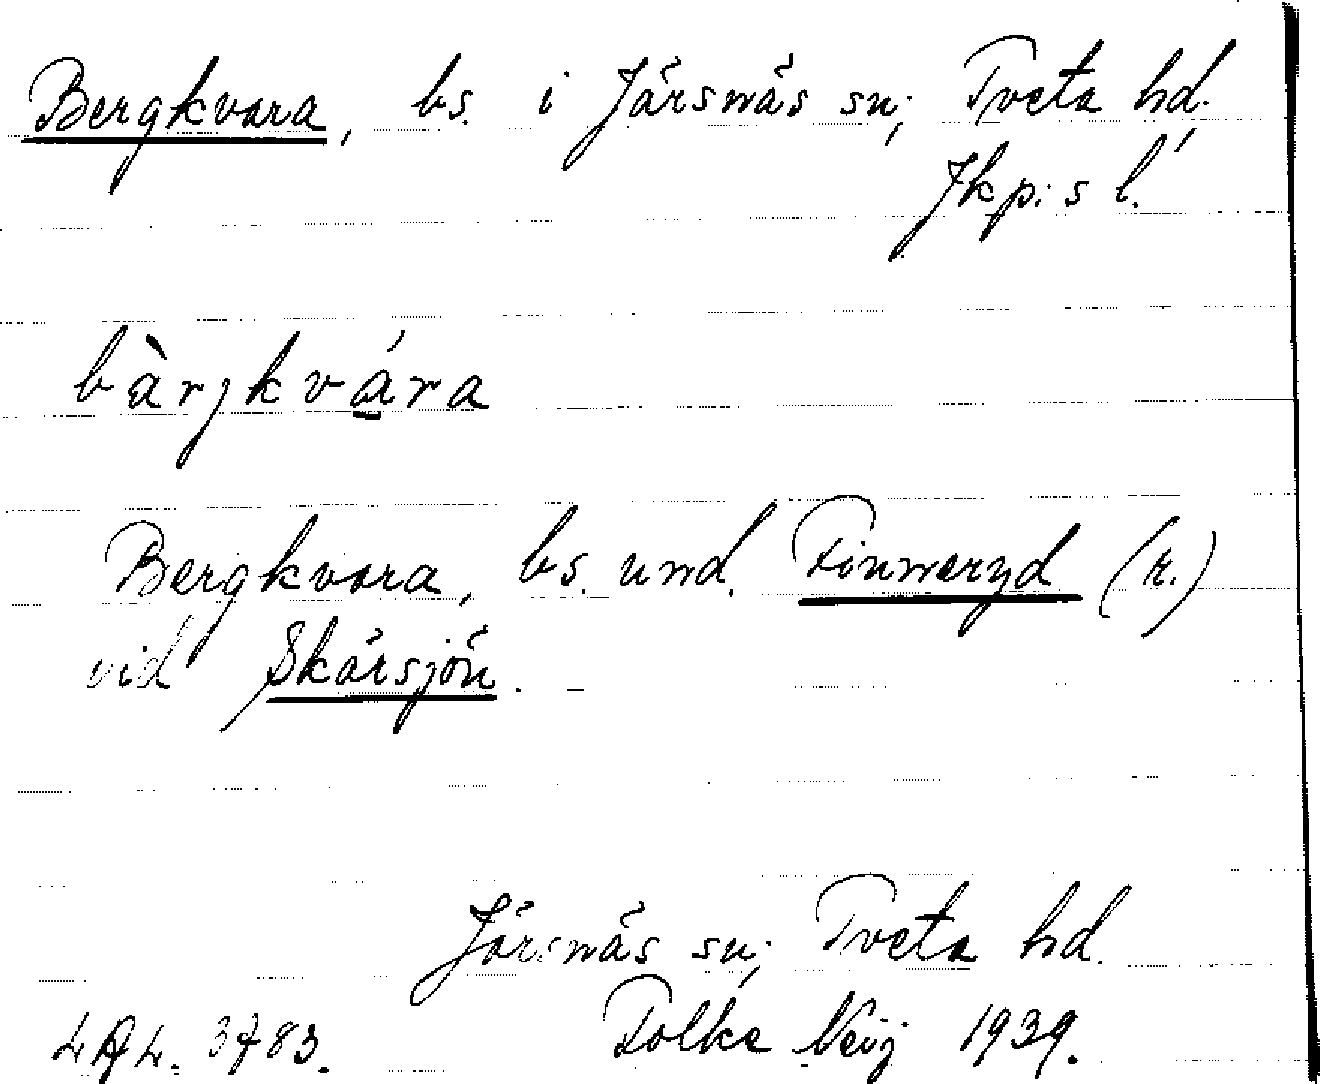 Bergkvara, bs. i Järsnäs sn; Tveta hd.
Jkp:s l.
bàrjkvára
Bergkvara, bs. und. Finneryd (r.)
vid Skärsjön.
Järsnäs sn; Tveta hd.
3783. Folke 1939.